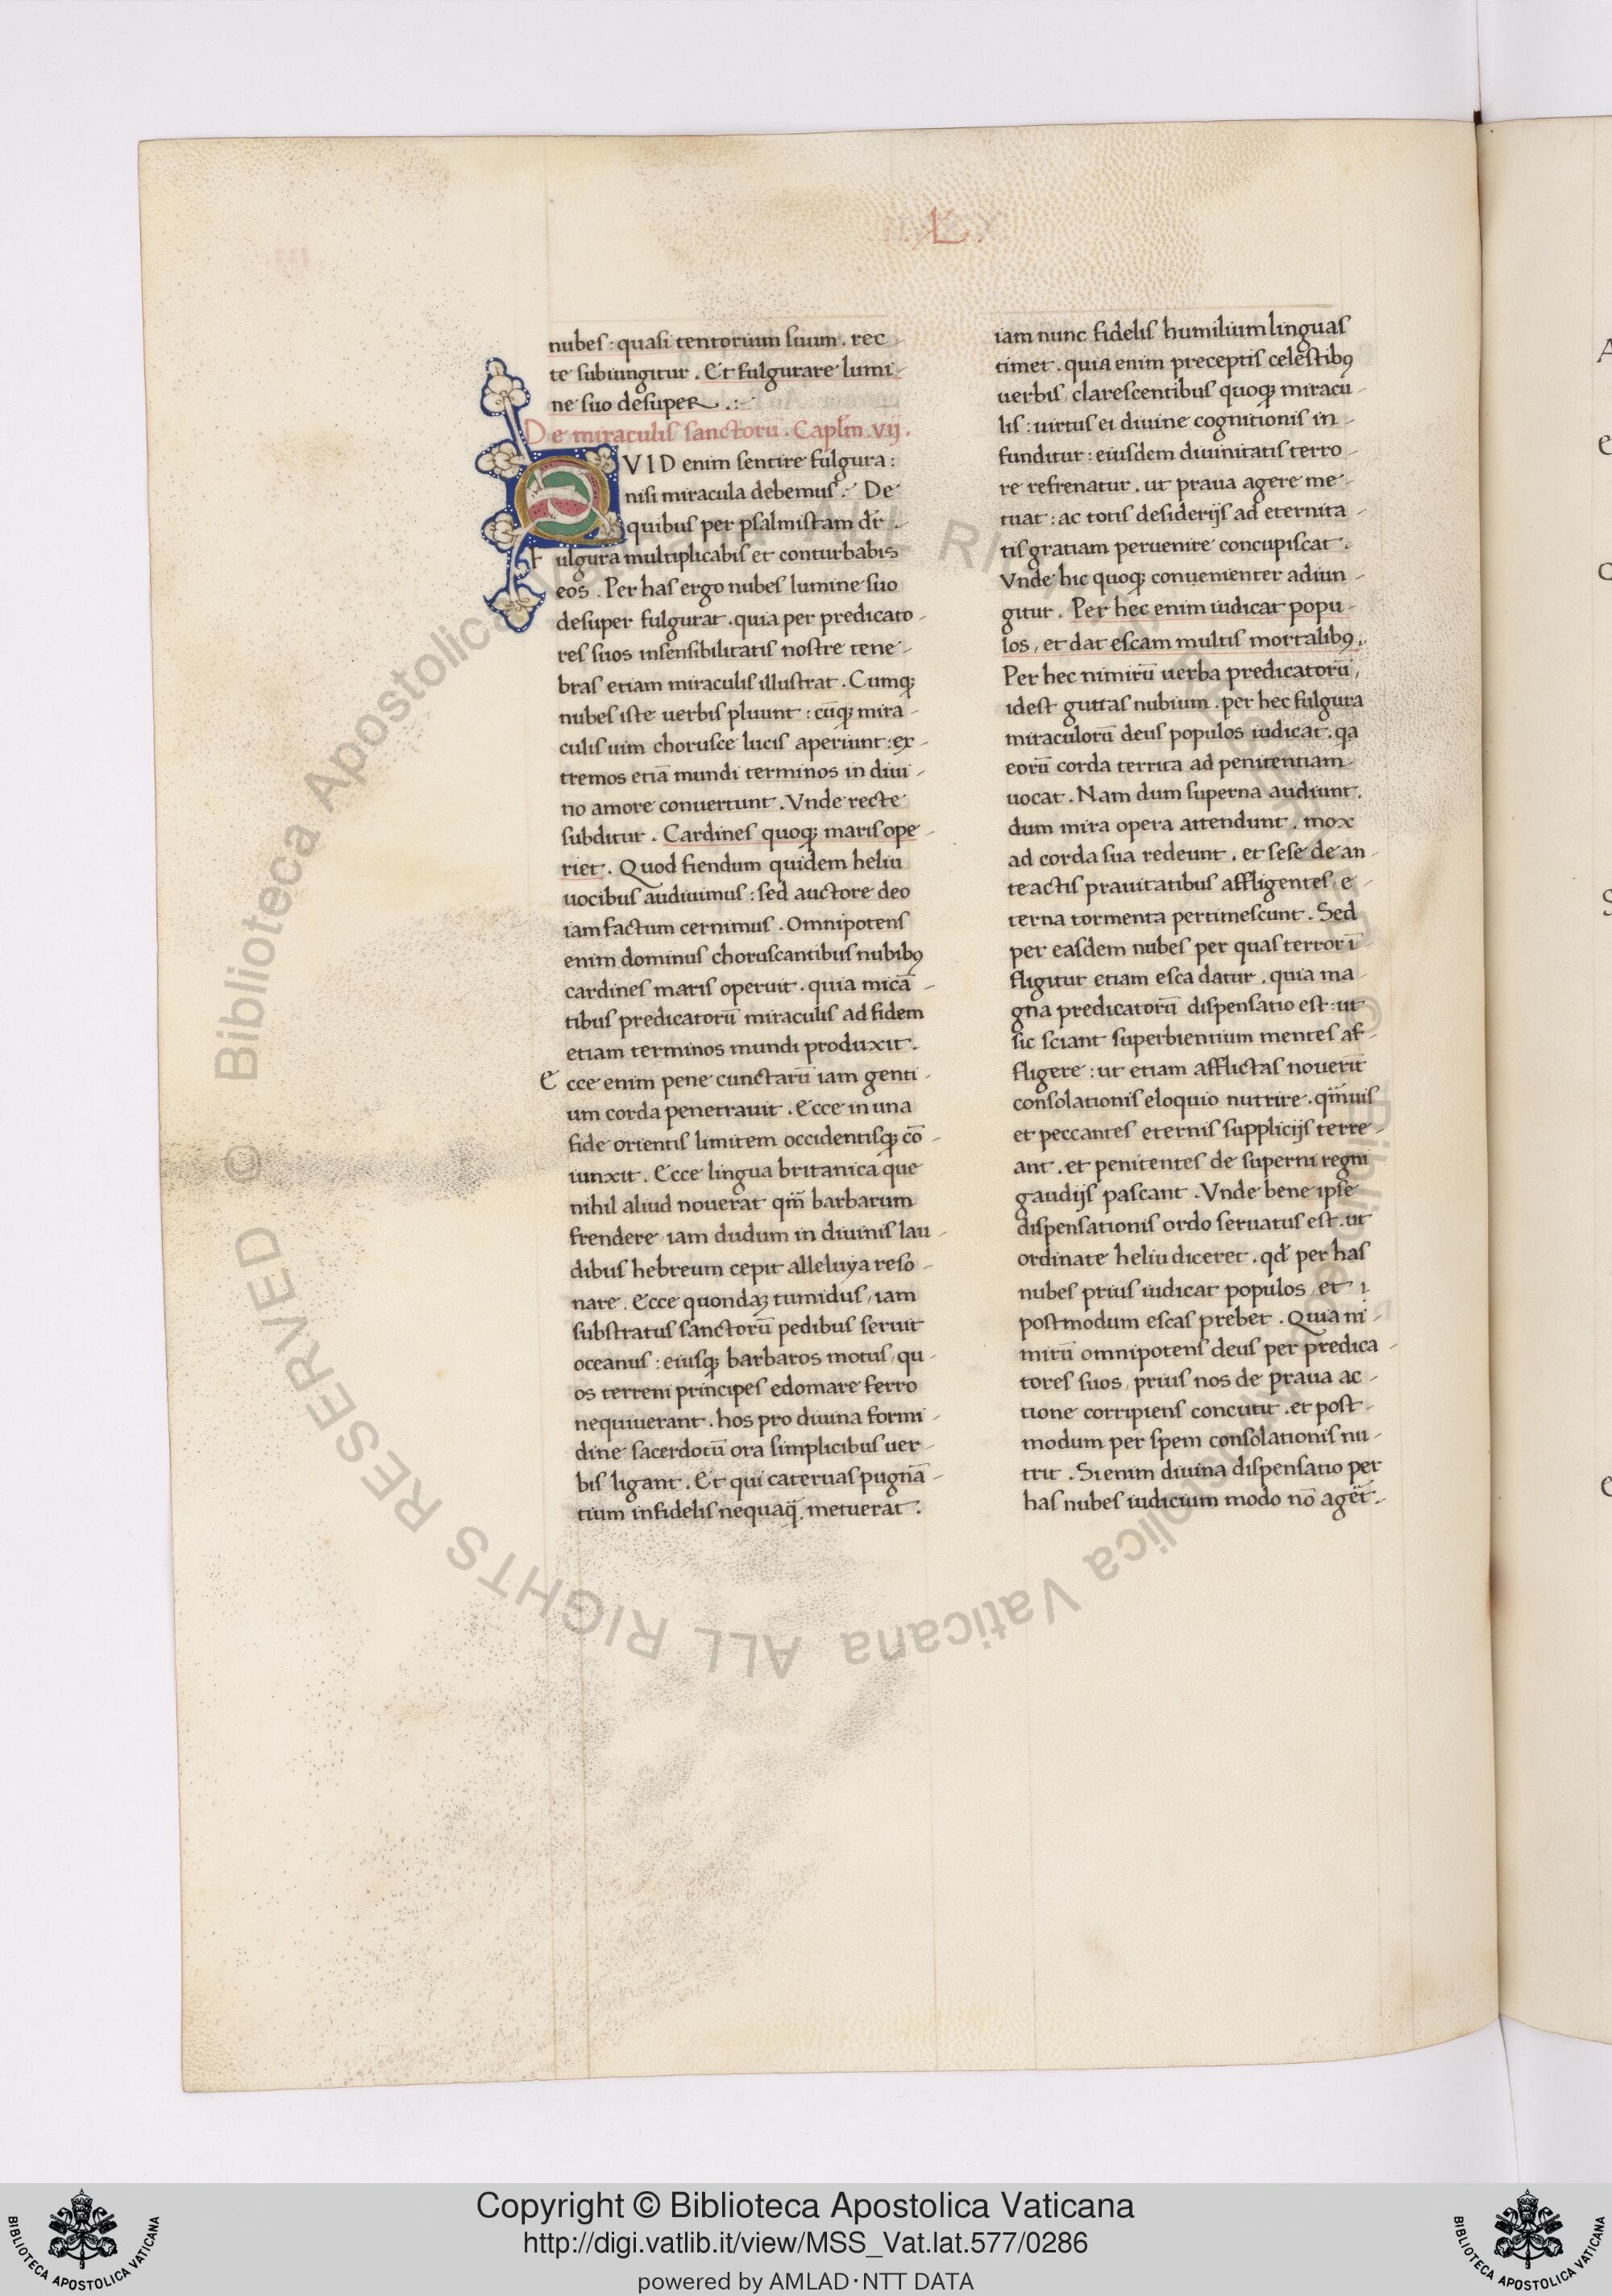 .L.
nubes : quasi tentorium suum . rec-
te subiungitur . Et fulgurare lumi-
ne suo desuper .:-
De miraculis sanctorū . Capl̅m vij.
QVID enim sentire fulgura :
nisi miracula debemus .- De
quibus per psalmistam dr̅ .
fulgura multiplicabis et conturbabis
eos . Per has ergo nubes lumine suo
desuper fulgurat . quia per predicato-
res suos insensibilitatis nostre tene-
bras etiam miraculis illustrat . Cumq;
nubes iste uerbis pluunt : cūq; mira-
culis uim chorusce lucis aperiunt : ex-
tremos etiā mundi terminos in diui-
no amore conuertunt . Vnde recte
subditur . Cardines quoq; maris ope-
riet . Quod fiendum quidem heliu
uocibus audiuimus : sed auctore deo
iam factum cernimus . Omnipotens
enim dominus choruscantibus nubibꝯ
cardines maris operuit . quia micā-
tibus predicatorū miraculis ad fidem
etiam terminos mundi produxit .
Ecce enim pene cunctarū iam genti-
um corda penetrauit . Ecce in una
fide orientis limitem occidentisq; cō-
iunxit . Ecce lingua britanica que
nihil aliud nouerat qm̅ barbarum
frendere / iam dudum in diuinis lau-
dibus hebreum cepit alleluya reso-
nare . Ecce quondaꝫ tumidus / iam
substratus sanctorū pedibus seruit
oceanus : eiusq; barbaros motus / qu-
os terreni principes edomare ferro
nequiuerant . hos pro diuina formi-
dine sacerdotū ora simplicibus uer-
bis ligant . Et qui cateruas pugnā-
tium infidelis nequaq̄ . metuerat .
iam nunc fidelis humilium linguas
timet . quia enim preceptis celestibꝯ
uerbis / clarescentibus quoq; miracu-
lis : uirtus ei diuine cognitionis in-
funditur : eiusdem diuinitatis terro-
re refrenatur . ut praua agere me-
tuat : ac totis desiderijs ad eternita-
tis gratiam peruenire concupiscat .
Vnde hic quoq; conuenienter adiun-
gitur . Per hec enim iudicat popu-
los / et dat escam multis mortalibꝯ .
Per hec nimirū uerba predicatorū /
idest guttas nubium . per hec fulgura
miraculorū deus populos iudicat . qa
eorū corda territa ad penitentiam
uocat . Nam dum superna audiunt .
dum mira opera attendunt . mox
ad corda sua redeunt . et sese de an-
teactis prauitatibus affligentes / e-
terna tormenta pertimescunt . Sed
per easdem nubes per quas terror ī-
fligitur etiam esca datur . quia ma-
gna predicatorū dispensatio est : ut
sic sciant superbientium mentes af-
fligere : ut etiam afflictas nouerīt
consolationis eloquio nutrire .
et peccantes eternis supplicijs terre-
ant . et penitentes de superni regni
gaudijs pascant . Vnde bene ipse
dispensationis ordo seruatus est . ut
ordinate heliu diceret . qd̅ per has
nubes prius iudicat populos / et
postmodum escas prebet . Quia ni-
mirū omnipotens deus per predica-
tores suos / prius nos de praua ac-
tione corripiens concutit . et post-
modum per spem consolationis nu-
trit . Si enim diuina dispensatio per
has nubes iudicium modo nō aget .
© Biblioteca Apostolica Vaticana ALL RIGHTS RESERVED
Copyright © Biblioteca Apostolica Vaticana
http://digi.vatlib.it/view/MSS_Vat.lat.577/0286
powered by AMLAD·NTT DATA
BIBLIOTECA APOSTOLICA VATICANA
BIBLIOTECA APOSTOLICA VATICANA